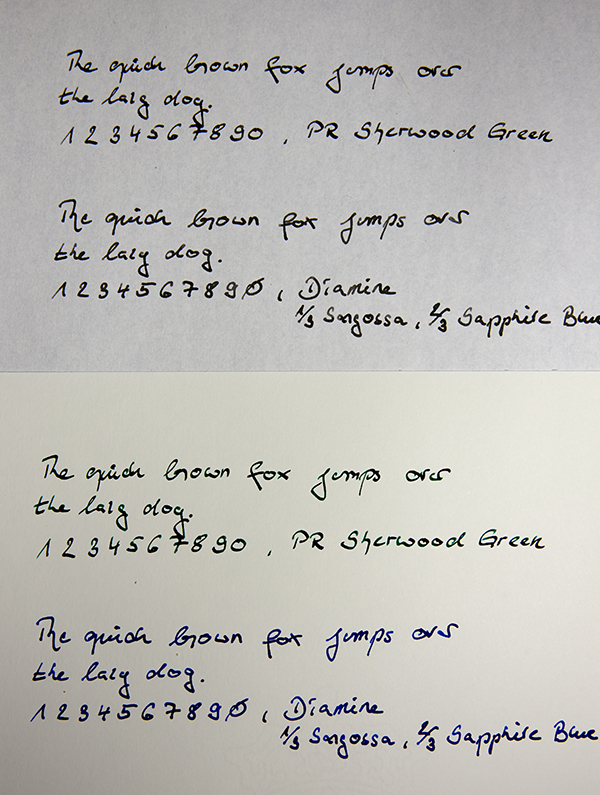 The quick brown fox jumps over
the lazy dog.
1 2 3 4 5 6 7 8 9 0 , PR Sherwood Green
The quick brown fox jumps over
the lazy dog.
1 2 3 4 5 6 7 8 9 0 , Diamine
1/3 Sargossa, 2/3 Sapphire Blue
The quick brown fox jumps over
the lazy dog.
1 2 3 4 5 6 7 8 9 0 , PR Sherwood Green
The quick brown fox jumps over
the lazy dog.
1 2 3 4 5 6 7 8 9 0 , Diamine
1/3 Sargossa, 2/3 Sapphire Blue